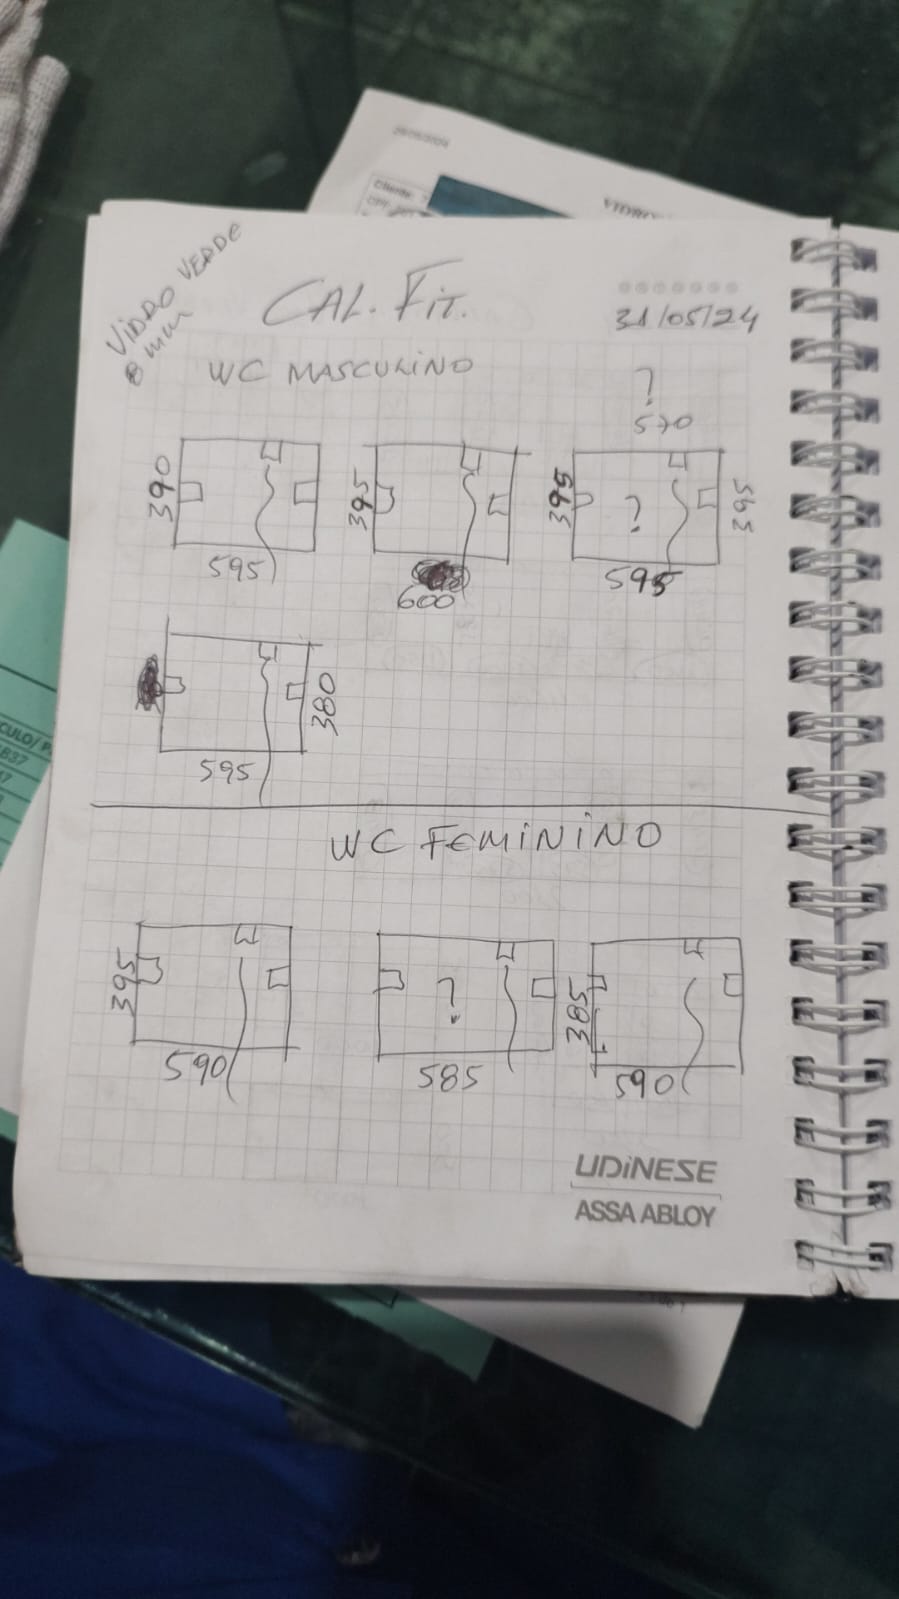 28/05/2024
Cliente:
VIDRO
VIDRO VERDE
8 mm
CAL. FIT.
31/05/24
WC MASCULINO
?
570
390
595
395
600
395
?
393
595
380
595
WC FEMININO
395
590
?
585
385
590
UDINESE
ASSA ABLOY